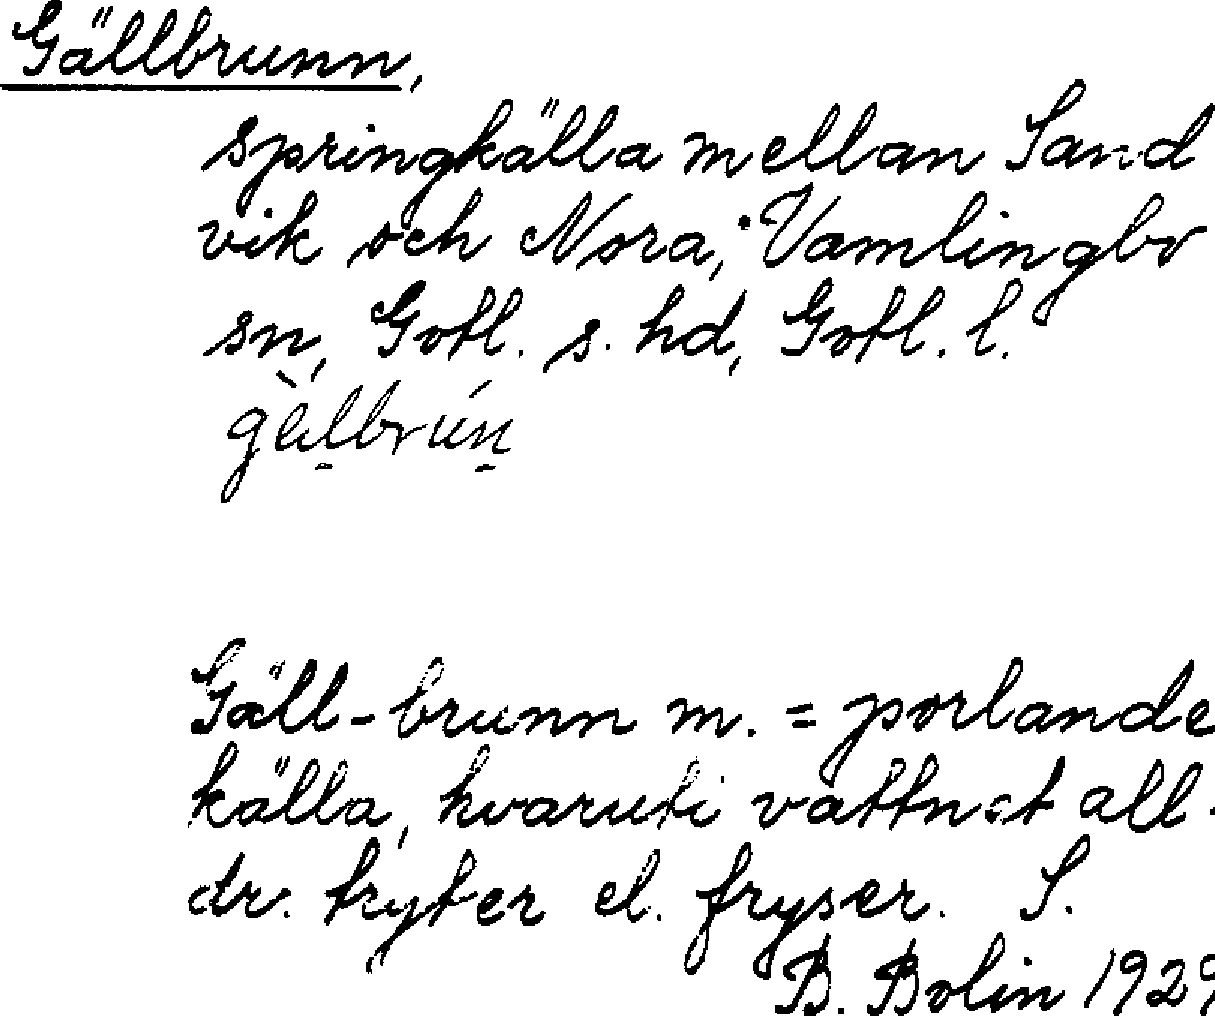 Gällbrunn,
springkälla mellan Sand
vik och Nora, Vamlingbo
sn, Gotl. s. hd, Gotl. l.
Gäll-brunn m. = porlande
källa, hvaruti vattnet all-
dr. tryter el. fryser. S.
B. Bolin 1929